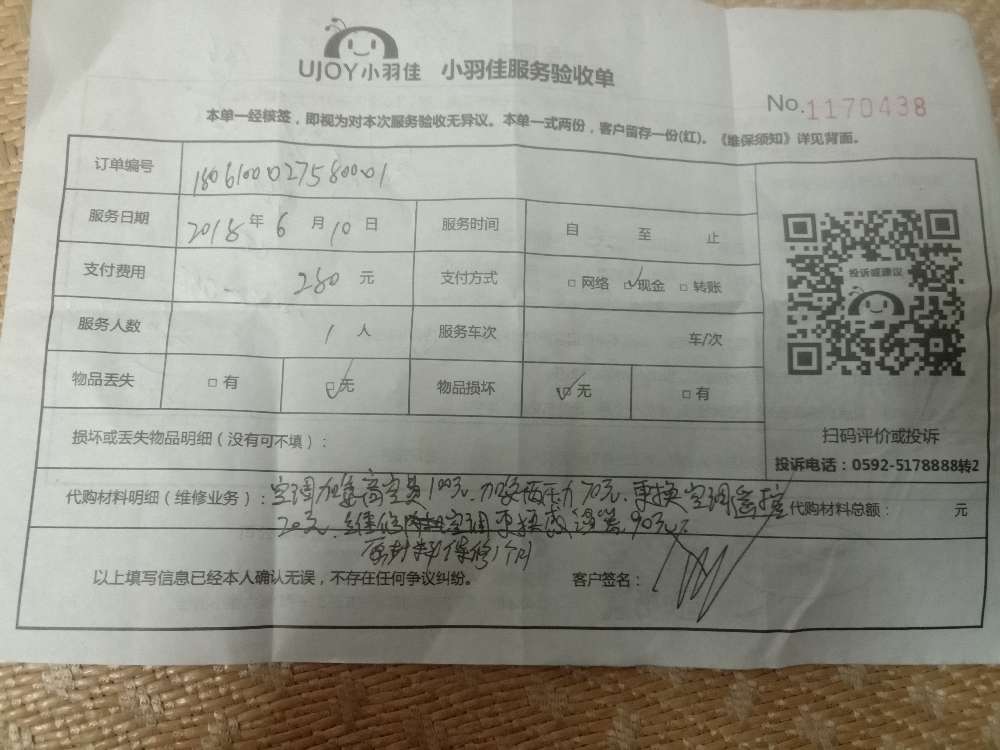 UJOY小羽佳 小羽佳服务验收单
No.1170438
本单一经核签，即视为对本次服务验收无异议。本单一式两份，客户留存一份(红)。《维保须知》详见背面。
订单编号 1806100027580001
服务日期 2018年6月10日 服务时间 自 至 止
支付费用 280元 支付方式 □网络 ☑现金 □转账
服务人数 1人 服务车次 车/次
物品丢失 □有 ☑无 物品损坏 ☑无 □有
投诉或建议
扫码评价或投诉
投诉电话：0592-5178888转2
损坏或丢失物品明细（没有可不填）：
代购材料明细（维修业务）：空调加氟高空费100元.加氟压力70元.更换空调遥控 代购材料总额： 元
20元.维修空调更换感温器90元.
保修1个月
以上填写信息已经本人确认无误，不存在任何争议纠纷。 客户签名：